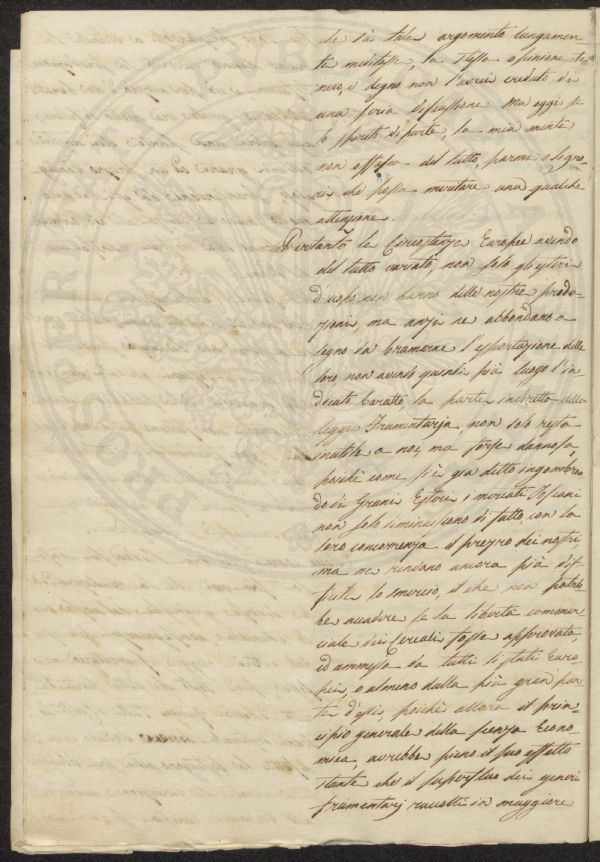 do in tale argomento lungamen
te meditasse, la stessa opinione te
nevo, e degno non l'avrei creduto di
una seria discussione. Ma oggi
lo spirito di parte, la mia mente
non offusca del tutto, parmi o Signo
ri che possa meritare una qualche
attenzione.
Pertanto le Circostanze Europee avendo
del tutto variato, non solo gli esteri
d'uopo non hanno delle nostre produ-
zioni, ma anzi ne abbondano a
segno da bramarne l'esportazione delle
loro non avendo quindi più luogo l'in
dicato Baratto, la parte indiretta della
legge Frumentaria, non solo resta
inutile a noi, ma forse dannosa,
poichè come si è già detto ingombran
do di Grani Esteri i mercati Toscani
non solo diminuiscono di fatto, con la
loro concorrenza il prezzo dei nostri
ma ne rendono ancora più dif
ficile lo smercio, il che non potreb
be accadere se la libertà commer
ciale dei Cereali fosse approvata,
ed ammessa da tutti li Stati Euro
pei, o almeno dalla più gran par
te d'essi, poichè allora il prin-
cipio generale della scienza Econo
mica, avrebbe pieno il suo effetto
stante che il superfluo dei generi
frumentarj raccolti in maggiore